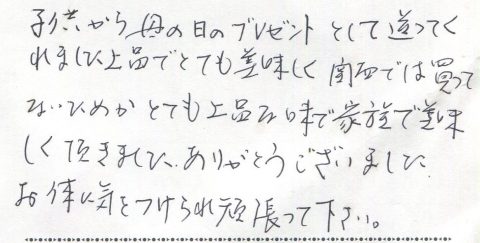 子供から母の日のプレゼントとして送ってく
れました上品でとても美味しく関西では買って
ないためかとても上品な味で家族で美味
しく頂きました、ありがとうございました
お体に気をつけられ頑張って下さい。